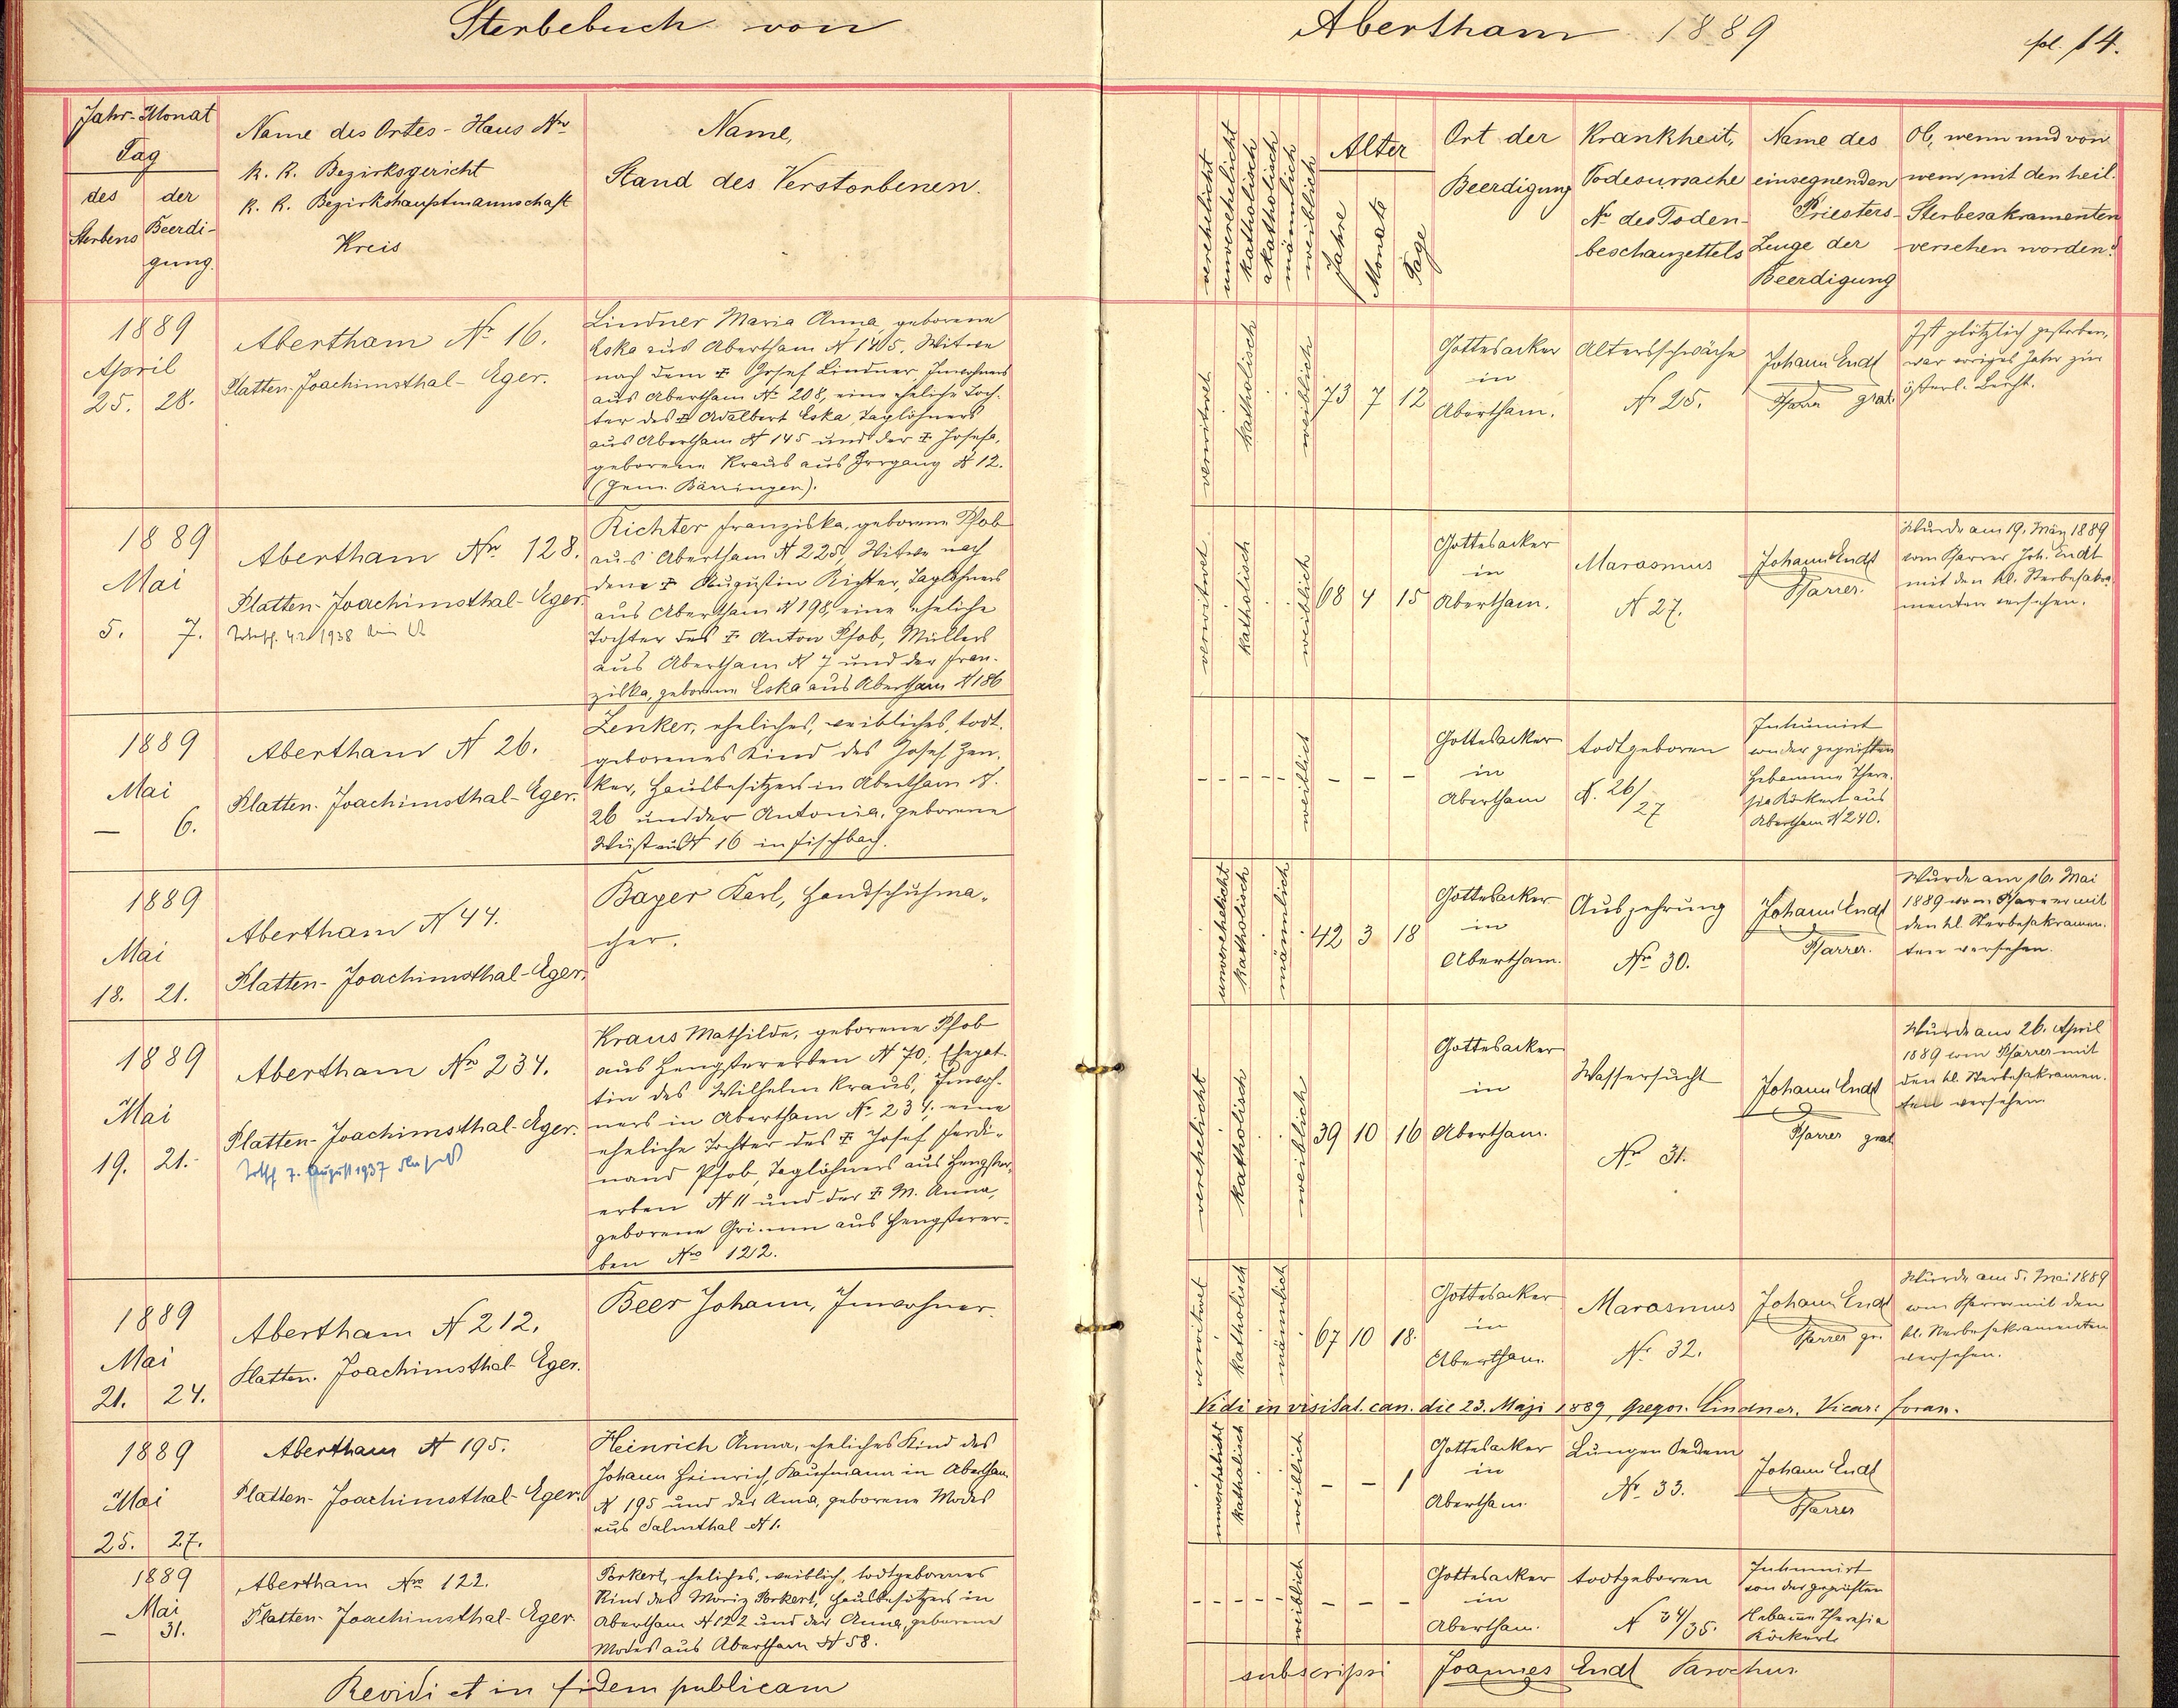 Sterbebuch von Abertham 1889 fol. 14.
Jahr-Monat
Tag
des Sterbens
der Beerdi-
gung.
Name des Ortes - Haus Nro
K. K. Bezirksgericht
K. K. Bezirkshauptmannschaft
Kreis
Name,
Stand des Verstorbenen.
verehelicht
unverehelicht
katholisch
akatholisch
männlich
weiblich
Alter
Jahre
Monate
Tage
Ort der
Beerdigung
Krankheit,
Todesursache
Nr des Toden-
beschauzettels
Name des
einsegnenden
Priesters-
Zeuge der
Beerdigung
Ob, wenn und von
wem, mit den heil.
Sterbesakramenten
versehen worden?
1889
April
25. 28.
Abertham Nr 16.
Platten-Joachimsthal-Eger.
Lindner Maria Anna, geborene
Eska aus Abertham N 145, Witwe
nach dem † Josef Lindner, Inwohners
aus Abertham Nr 208, eine eheliche Toch-
ter des † Adalbert Eska, Taglöhners
aus Abertham N 145 und der † Josefa,
geborene Kraus aus Irrgang N 12.
(Gem. Bärringen).
verwitwet
katholisch
weiblich
73 7 12
Gottesacker
in
Abertham.
Altersschwäche
N 25.
Johann Endt
Pfarrer grat.
Ist plötzlich gestorben,
war voriges Jahr zur
österl. Beicht.
1889
Mai
5. 7.
Abertham Nro 128.
Platten-Joachimsthal-Eger.
1938
Richter Franziska, geborene Pfob
aus Abertham N 225, Witwe nach
dem † Augustin Richter, Taglöhners
aus Abertham N 198, eine eheliche
Tochter des † Anton Pfob, Müllers
aus Abertham N 7 und der Fran-
ziska, geborene Eska aus Abertham N 186
verwitwet
katholisch
weiblich
68 4 15
Gottesacker
in
Abertham.
Marasmus
N 27.
Johann Endt
Pfarrer.
Wurde am 19. März 1889
vom Pfarrer Joh. Endt
mit den hl. Sterbesakra-
menten versehen.
1889
Mai
– 6.
Abertham N 26.
Platten-Joachimsthal-Eger.
Zenker, eheliches, weibliches, todt-
geborenes Kind des Josef Zen-
ker, Hausbesitzers in Abertham N.
26 und der Antonia, geborene
Wüst aus N 16 in Fischbach.
– – – – – weiblich – – –
Gottesacker
in
Abertham
todtgeboren
N. 26/27
Inhumirt
von der geprüften
Hebamme There-
sia Röckert aus
Abertham N 240.
1889
Mai
18. 21.
Abertham N 44.
Platten-Joachimsthal-Eger.
Bayer Karl, Handschuhma-
cher.
unverehelicht
katholisch
männlich
42 3 18
Gottesacker
in
Abertham.
Auszehrung
Nro 30.
Johann Endt
Pfarrer.
Wurde am 16. Mai
1889 vom Pfarrer mit
den hl. Sterbesakramen-
ten versehen.
1889
Mai
19. 21.
Abertham Nro 234.
Platten-Joachimsthal-Eger.
7. August 1937
Kraus Mathilde, geborene Pfob
aus Hengstererben N 70; Ehegat-
tin des Wilhelm Kraus, Inwoh-
ners in Abertham Nr 234; eine
eheliche Tochter des † Josef Ferdi-
nand Pfob, Taglöhners aus Hengster-
erben N 11 und der † M. Anna,
geborene Grimm aus Hengsterer-
ben Nro 122.
verehelicht
katholisch
weiblich
39 10 16
Gottesacker
in
Abertham.
Wassersucht
Nro 31.
Johann Endt
Pfarrer grat
Wurde am 26. April
1889 vom Pfarrer mit
den hl. Sterbesakramen-
ten versehen
1889
Mai
21. 24.
Abertham N 212.
Platten-Joachimsthal-Eger.
Beer Johann, Inwohner.
verwitwet
katholisch
männlich
67 10 18.
Gottesacker
in
Abertham.
Marasmus
Nr. 32.
Johann Endt
Pfarrer gr.
Wurde am 5. Mai 1889
vom Pfarrer mit den
hl. Sterbesakramenten
versehen.
Vidi in visitat. can. die 23. Maji 1889, Gregor. Lindner. Vicar. foran.
1889
Mai
25. 27.
Abertham N 195.
Platten-Joachimsthal-Eger.
Heinrich Anna, eheliches Kind des
Johann Heinrich, Kaufmann in Abertham
N 195 und der Anna, geborene Modes
aus Salmthal N 1.
unverehelicht
katholisch
weiblich
– – 1
Gottesacker
in
Abertham.
Lungen Oedem
Nr. 33.
Johann Endt
Pfarrer
1889
Mai
– 31.
Abertham Nro 122.
Platten-Joachimsthal-Eger.
Porkert, eheliches, weiblich, todtgeborenes
Kind des Moriz Porkert, Hausbesitzers in
Abertham N 122 und der Anna, geborene
Modes aus Abertham N 58.
– – – – – weiblich – – –
Gottesacker
in
Abertham.
todtgeboren
N 34/35.
Inhumirt
von der geprüften
Hebamme Theresia
Röckert.
Revidi et in fidem publicam subscripsi Joannes Endt Parochus.